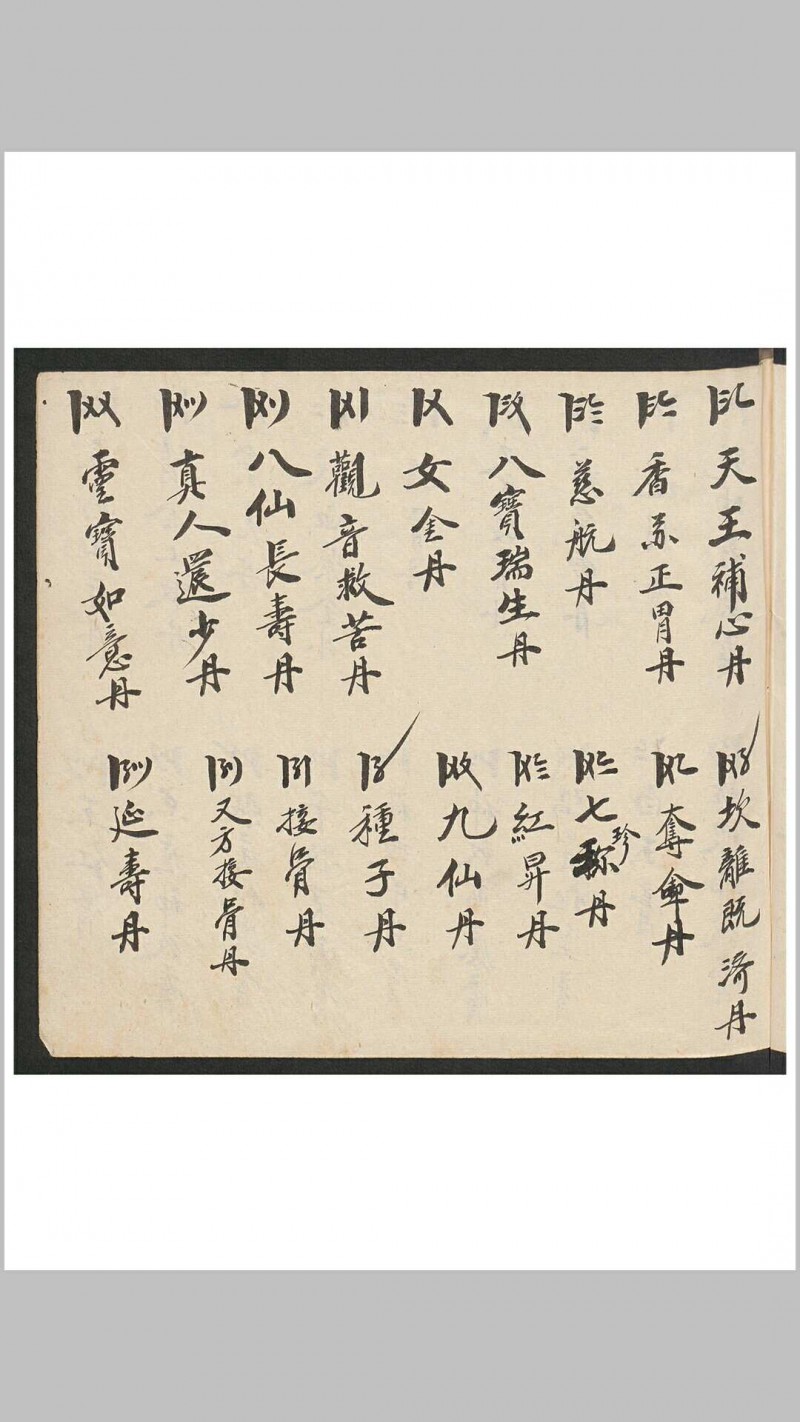 天王補心丹
香苏正胃丹
慈航丹
八寶瑞生丹
女金丹
觀音救苦丹
八仙長壽丹
真人還少丹
霊寶如意丹
坎離既济丹
奪命丹
七珍丹
紅昇丹
九仙丹
種子丹
接骨丹
又方接骨丹
延壽丹